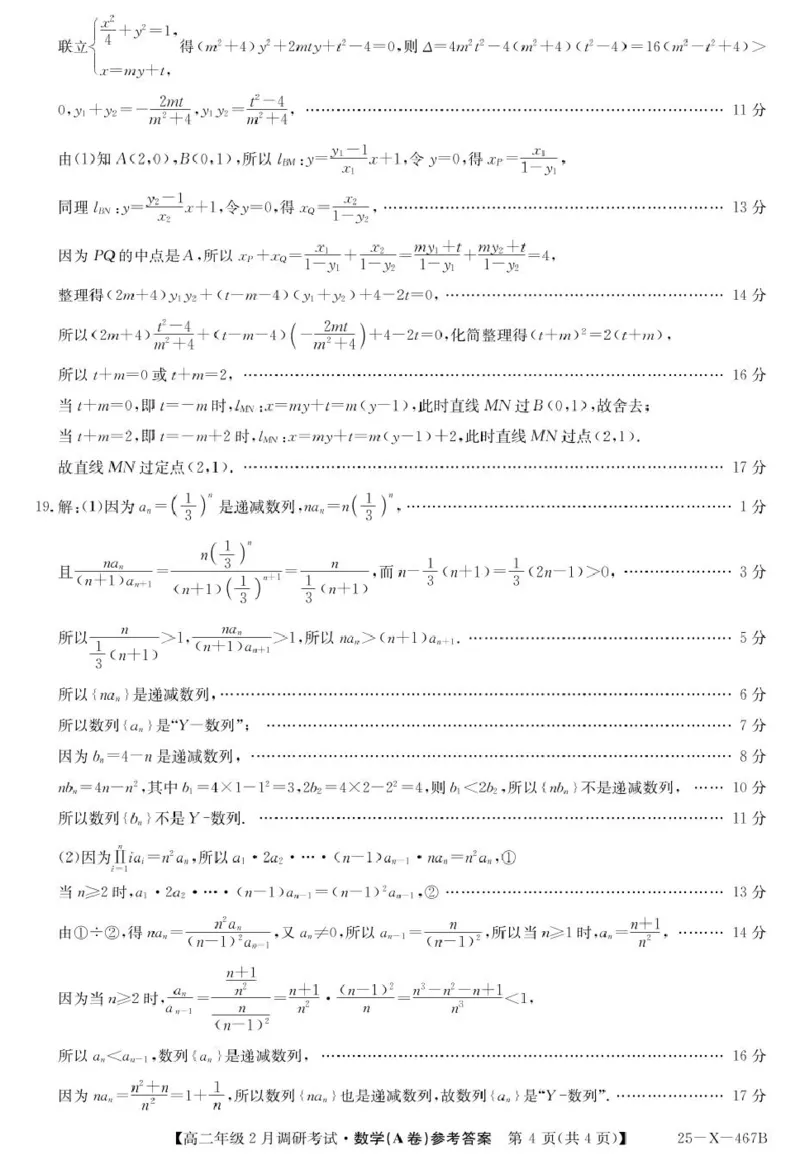 联立{x²/4+y²=1, x=my+t, 得(m²+4)y²+2mty+t²-4=0,则 Δ=4m²t²-4(m²+4)(t²-4)=16(m²-t²+4)>
0,y₁+y₂=-2mt/(m²+4),y₁y₂=(t²-4)/(m²+4), …… 11 分
由(1)知 A(2,0),B(0,1),所以 l_BM:y=(y₁-1)/x₁ x+1,令 y=0,得 x_P=x₁/(1-y₁),
同理 l_BN:y=(y₂-1)/x₂ x+1,令y=0,得 x_Q=x₂/(1-y₂), …… 13 分
因为 PQ 的中点是 A,所以 x_P+x_Q=x₁/(1-y₁)+x₂/(1-y₂)=(my₁+t)/(1-y₁)+(my₂+t)/(1-y₂)=4,
整理得(2m+4)y₁y₂+(t-m-4)(y₁+y₂)+4-2t=0, …… 14 分
所以(2m+4)(t²-4)/(m²+4)+(t-m-4)(-2mt/(m²+4))+4-2t=0,化简整理得(t+m)²=2(t+m),
所以 t+m=0 或 t+m=2, …… 16 分
当 t+m=0,即 t=-m 时,l_MN:x=my+t=m(y-1),此时直线 MN 过 B(0,1),故舍去;
当 t+m=2,即 t=-m+2 时,l_MN:x=my+t=m(y-1)+2,此时直线 MN 过点(2,1).
故直线 MN 过定点(2,1). …… 17 分
19.解:(1)因为 aₙ=(1/3)ⁿ 是递减数列,naₙ=n(1/3)ⁿ, …… 1 分
且 naₙ/((n+1)aₙ₊₁)=n(1/3)ⁿ/((n+1)(1/3)ⁿ⁺¹)=n/(1/3(n+1)),而 n-1/3(n+1)=1/3(2n-1)>0, …… 3 分
所以 n/(1/3(n+1))>1,naₙ/((n+1)aₙ₊₁)>1,所以 naₙ>(n+1)aₙ₊₁. …… 5 分
所以{naₙ}是递减数列, …… 6 分
所以数列{aₙ}是“Y—数列”; …… 7 分
因为 bₙ=4-n 是递减数列, …… 8 分
nbₙ=4n-n²,其中 b₁=4×1-1²=3,2b₂=4×2-2²=4,则 b₁<2b₂,所以{nbₙ}不是递减数列, …… 10 分
所以数列{bₙ}不是 Y-数列. …… 11 分
(2)因为∏ⁿᵢ₌₁iaᵢ=n²aₙ,所以 a₁·2a₂·…·(n-1)aₙ₋₁·naₙ=n²aₙ,①
当 n≥2 时,a₁·2a₂·…·(n-1)aₙ₋₁=(n-1)²aₙ₋₁,② …… 13 分
由①÷②,得 naₙ=n²aₙ/((n-1)²aₙ₋₁),又 aₙ≠0,所以 aₙ₋₁=n/(n-1)²,所以当 n≥1 时,aₙ=(n+1)/n², …… 14 分
因为当 n≥2 时,aₙ/aₙ₋₁=((n+1)/n²)/(n/(n-1)²)=(n+1)/n²·(n-1)²/n=(n³-n²-n+1)/n³<1,
所以 aₙ<aₙ₋₁,数列{aₙ}是递减数列, …… 16 分
因为 naₙ=(n²+n)/n²=1+1/n,所以数列{naₙ}也是递减数列,故数列{aₙ}是“Y-数列”. …… 17 分
【高二年级 2 月调研考试·数学(A 卷)参考答案 第 4 页(共 4 页)】 25-X-467B